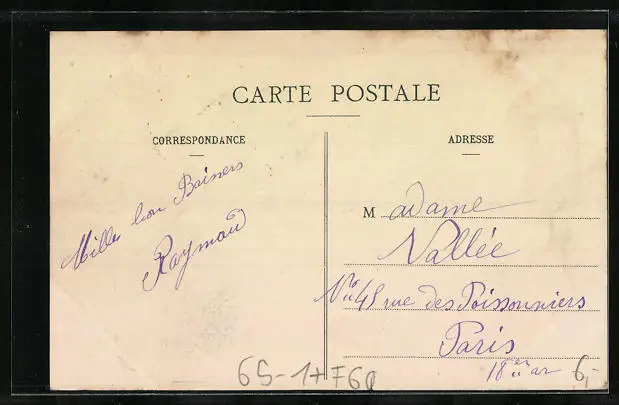 CARTE POSTALE
CORRESPONDANCE
Milles bon Baisers
Raymond
ADRESSE
Madame
Vallée
No 48 rue des Poissonniers
Paris
18 er ar
6,-